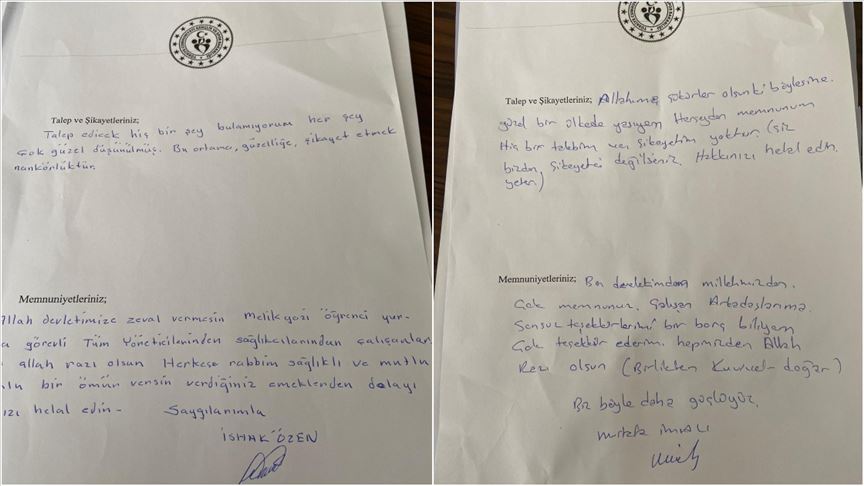 Talep ve Şikayetleriniz;
Talep edicek hiç bir şey bulamıyorum her şey
çok güzel düşünülmüş. Bu ortama, güzelliğe, şikayet etmek
nankörlüktür.
Memnuniyetleriniz;
Allah devletimize zeval vermesin Melikgazi öğrenci yur-
a görevli Tüm Yöneticilerinden sağlıkcılarından çalışanlar
allah razı olsun Herkese rabbim sağlıklı ve mutlu
bir ömür versin verdiğiniz emeklerden dolayı
ızı helal edin - Saygılarımla
İSHAK ÖZEN
Talep ve Şikayetleriniz; Allahıma şükürler olsun ki böylesine
güzel bir ülkede yaşıyam Herşeyden memnunum
Hiç bir talebim ve şikayetim yoktur (siz
bizden şikayetçi değilseniz. Hakkınızı helal edin
yeter)
Memnuniyetleriniz; Ben devletimden milletimizden
Çok memnunuz. Çalışan Arkadaşlarıma
Sonsuz teşekkürlerimi bir borç biliyam
Çok teşekkür ederim. hepinizden Allah
Razı olsun (Birlikten Kuvvet doğar)
Biz böyle daha güçlüyüz.